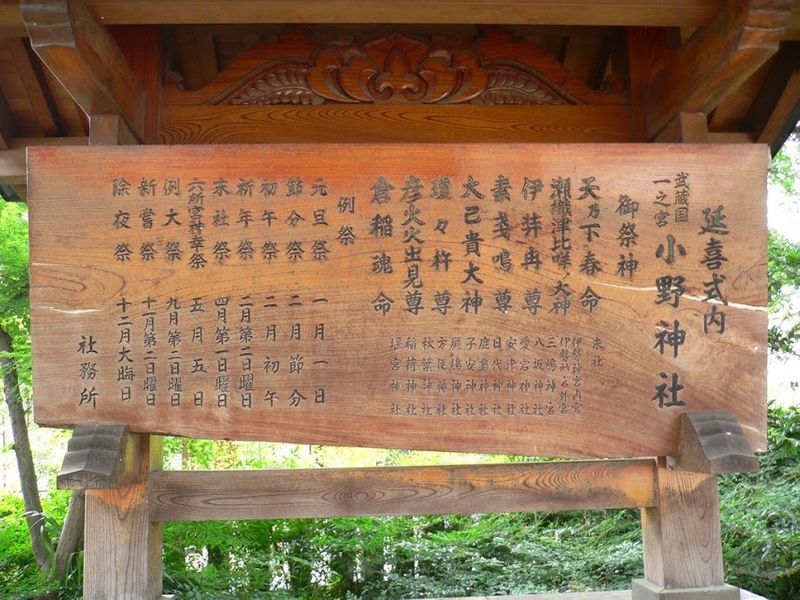 延喜式内
武蔵国
一之宮
小野神社
御祭神
天乃下春命
瀬織津比咩ノ大神
伊弉冉尊
素戔嗚尊
大己貴大神
瓊々杵尊
彦火火出見尊
倉稲魂命
末社
伊勢神宮内宮
三嶋神宮
八坂神社
愛宕神社
安津神社
日代神社
鹿島神社
子安神社
厳嶋神社
方便神社
秋葉神社
稲荷神社
堰宮神社
例祭
元旦祭 一月一日
節分祭 二月節分
初午祭 二月初午
祈年祭 二月第二日曜日
末社祭 四月第一日曜日
六所宮神幸祭 五月五日
例大祭 九月第二日曜日
新嘗祭 十一月第二日曜日
除夜祭 十二月大晦日
社務所